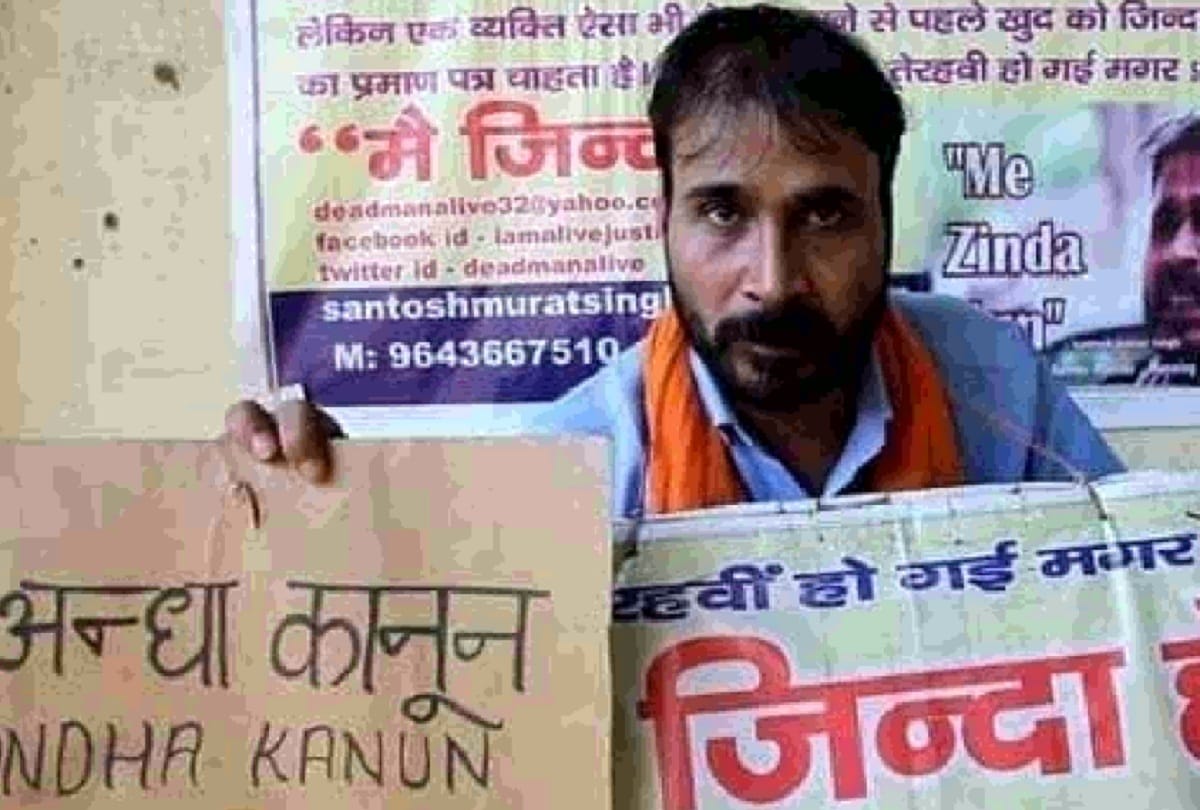 लेकिन एक व्यक्ति ऐसा भी से पहले खुद को
का प्रमाण पत्र चाहता है। तेरहवी हो गई मगर
“मै
deadmanalive32@yahoo.
facebook id - iamalivejusti
twitter id - deadmanalive
santoshmuratsingh
M: 9643667510
"Me
Zinda
अन्धा कानून
NDHA KANUN
हो गई मगर
जिन्दा